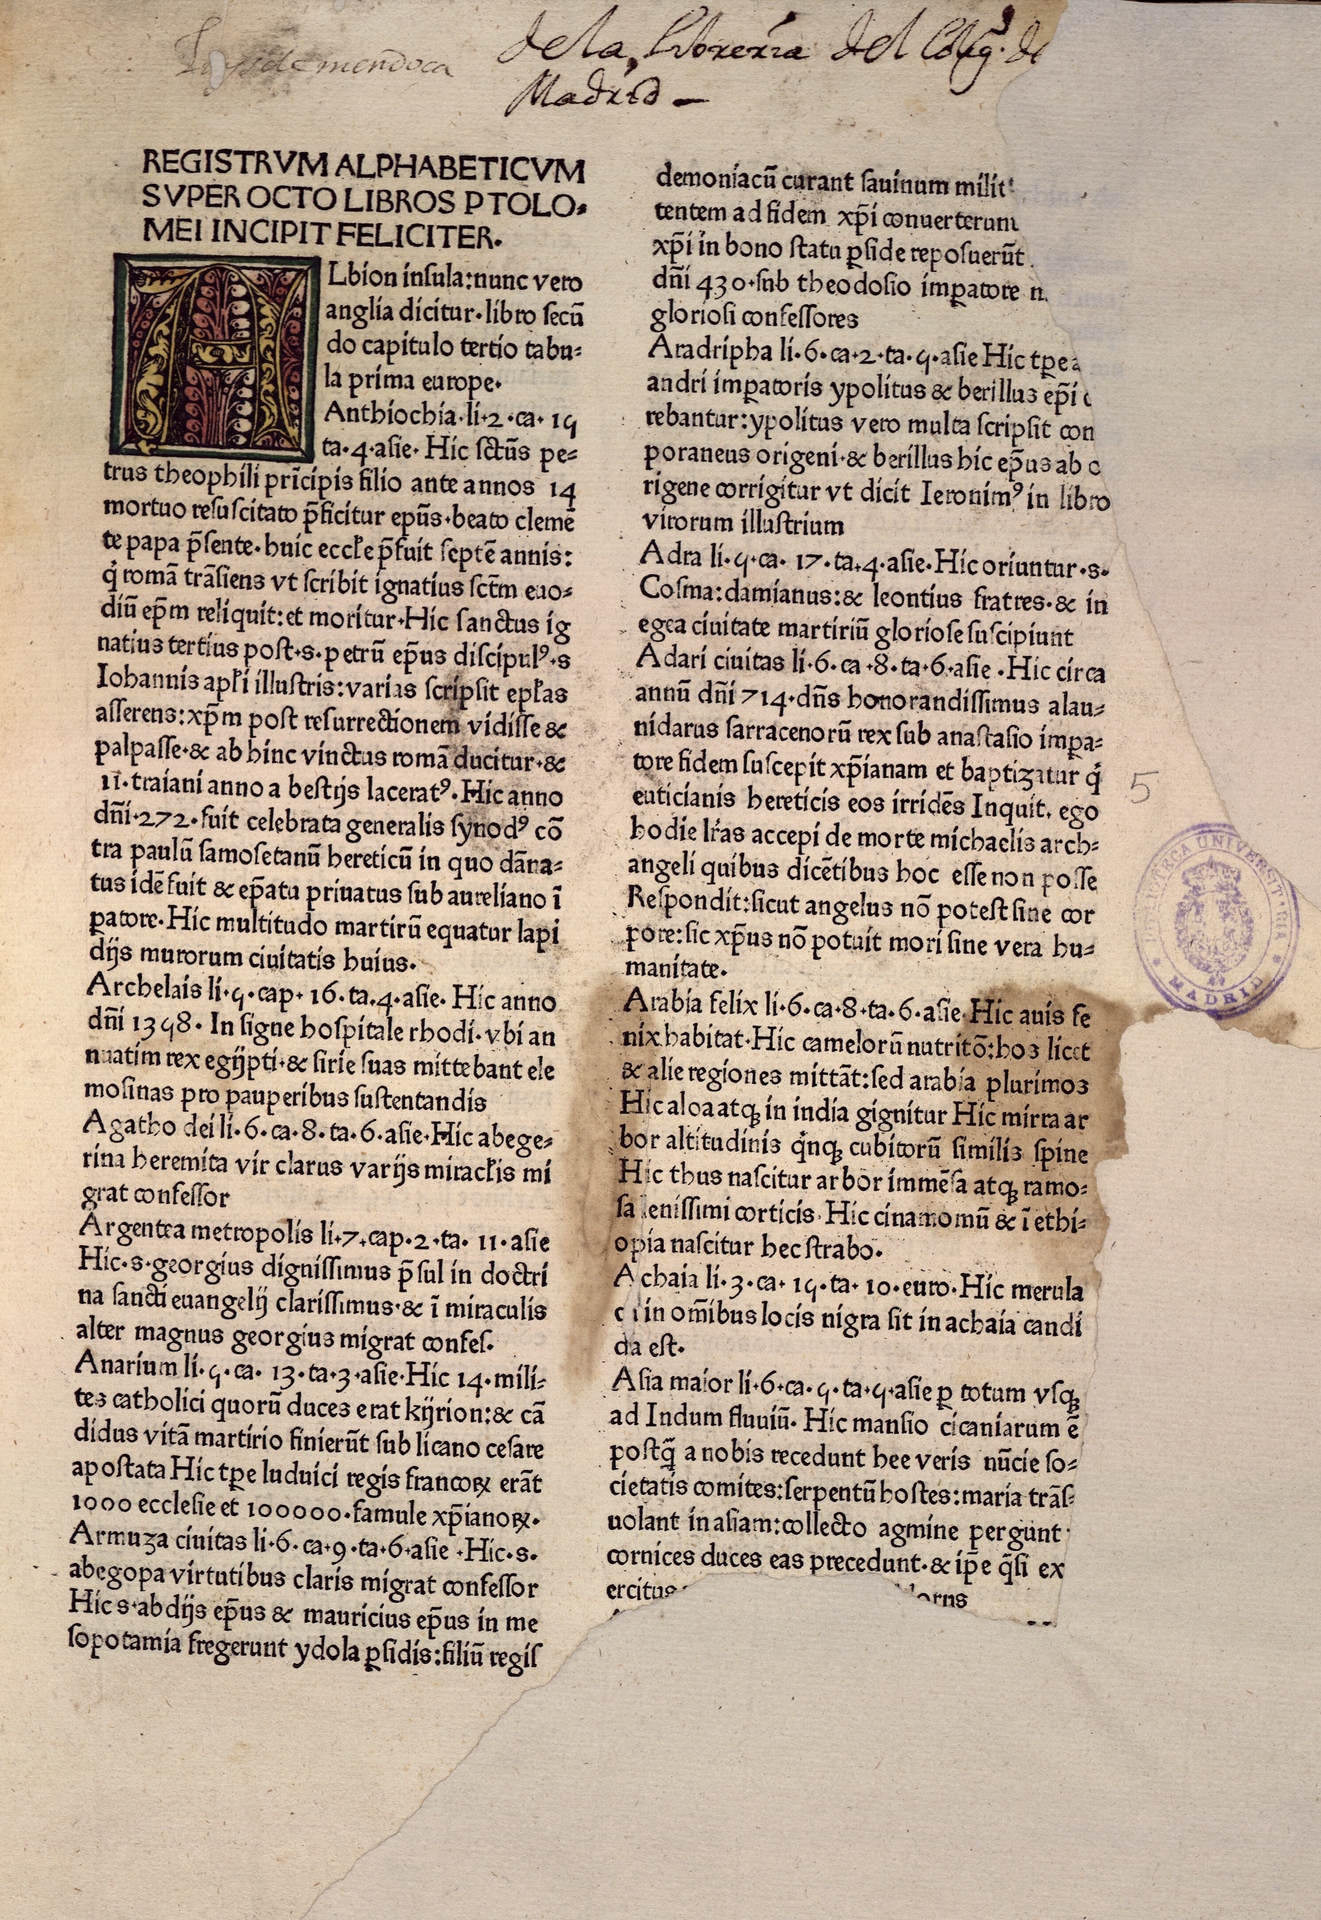 Luys de mendoca
de la Libreria del Collg.º de
Madrid —
REGISTRVM ALPHABETICVM
SVPER OCTO LIBROS PTOLO-
MEI INCIPIT FELICITER.
ALbion insula:nunc vero
anglia dicitur.libro secū
do capitulo tertio tabu-
la prima europe.
Anthiochia.li.2.ca.15
ta.4.asie. Hic sctūs pe-
trus theophili prīcipis filio ante annos 14
mortuo resuscitato p̄ficitur ep̄us.beato clemē
te papa p̄sente.huic eccłe p̄fuit septē annis:
q̇ romā trāsiens vt scribit ignatius sct̄m euo-
diū ep̄m reliquit:et moritur.Hic sanctus ig
natius tertius post.s.petrū ep̄us discipulꝰ.s
Iohannis apłi illustris:varias scripsit epłas
asserens:xp̄m post resurrectionem vidisse &
palpasse.& ab hinc vinctus romā ducitur.&
11.traiani anno a bestijs laceratꝰ.Hic anno
dn̄i.272.fuit celebrata generalis synodꝰ cō
tra paulū samosetanū hereticū in quo dāna-
tus idē fuit & ep̄atu priuatus sub aureliano ī
ꝑatore.Hic multitudo martirū equatur lapi
dijs murorum ciuitatis huius.
Archelais li.5.cap. 16.ta.4.asie. Hic anno
dn̄i 1398. In signe hospitale rhodi.vbi an
nuatim rex egijpti.& sirie suas mittebant ele
mosinas pro pauperibus sustentandis
Agatho dei li.6.ca.8.ta.6.asie.Hic abege-
rina heremita vir clarus varijs miracłis mi
grat confessor
Argentea metropolis li.7.cap.2.ta. 11.asie
Hic.s.georgius dignissimus p̄sul in doctri
na sancti euangelij clarissimus.& ī miraculis
alter magnus georgius migrat confes.
Anarium li.5.ca. 13.ta.3.asie.Hic 14.mili-
tes catholici quorū duces erat kijrion:& cā
didus vitā martirio finierūt sub licano cesare
apostata Hic tꝑe luduici regis francoꝝ erāt
1000 ecclesie et 100000.famule xp̄ianoꝝ.
Armuza ciuitas li.6.ca.9.ta.6.asie .Hic.s.
abegopa virtutibus claris migrat confessor
Hic s.abdijs ep̄us & mauricius ep̄us in me
sopotamia fregerunt ydola ꝑsidis:filiū regis
demoniacū curant sauinum milit
tentem ad fidem xp̄i conuerterunt
xp̄i in bono statu ꝑside reposuerūt.
dn̄i 430.sub theodosio imꝑatore
gloriosi confessores
Aradripha li.6.ca.2.ta.5.asie Hic tꝑe
andri imꝑatoris ypolitus & berillus ep̄i
rebantur:ypolitus vero multa scripsit con
poraneus origeni.& berillus hic ep̄us ab o
rigene corrigitur vt dicit Ieronimꝰ in libro
virorum illustrium
Adra li.5.ca. 17.ta.4.asie.Hic oriuntur.s.
Cosma:damianus:& leontius fratres.& in
egea ciuitate martiriū gloriose suscipiunt
Adari ciuitas li.6.ca.8.ta.6.asie .Hic circa
annū dn̄i 714.dn̄s honorandissimus alau-
nidarus sarracenorū rex sub anastasio imꝑa-
tore fidem suscepit xp̄ianam et baptizatur q̇
euticianis hereticis eos irridēs Inquit. ego
hodie lr̄as accepi de morte michaelis arch-
angeli quibus dicētibus hoc esse non posse
Respondit:sicut angelus nō potest sine cor
pore:sic xp̄us nō potuit mori sine vera hu-
manitate.
5
Arabia felix li.6.ca.8.ta.6.asie.Hic auis fe
nix habitat.Hic camelorū nutritō:hos licet
& alie regiones mittāt:sed arabia plurimos
Hic aloa atqꝫ in india gignitur Hic mirra ar
bor altitudinis q̇nqꝫ cubitorū similis spine
Hic thus nascitur arbor immēsa atqꝫ ramo-
sa lenissimi corticis.Hic cinamomū & ī ethi-
opia nascitur hec strabo.
Achaia li.3.ca.15.ta.10.euro.Hic merula
in om̄ibus locis nigra sit in achaia candi
da est.
Asia maior li.6.ca.5.ta.5.asie ꝑ totum vsqꝫ
ad Indum fluuiū. Hic mansio cicaniarum ē
postq̄ a nobis recedunt hee veris nūcie so-
cietatis comites:serpentū hostes:maria trās-
uolant in asiam:collecto agmine pergunt
cornices duces eas precedunt.& ip̄e q̄si ex
ercitus
BIBLIOTECA UNIVERSITARIA
* MADRID *